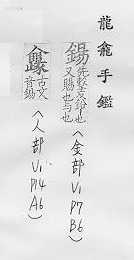 龍龕手鑑
錫
又賜也与也
(金部 V1 P7 B6)
古文
音錫
(人部 V1 P14 A6)